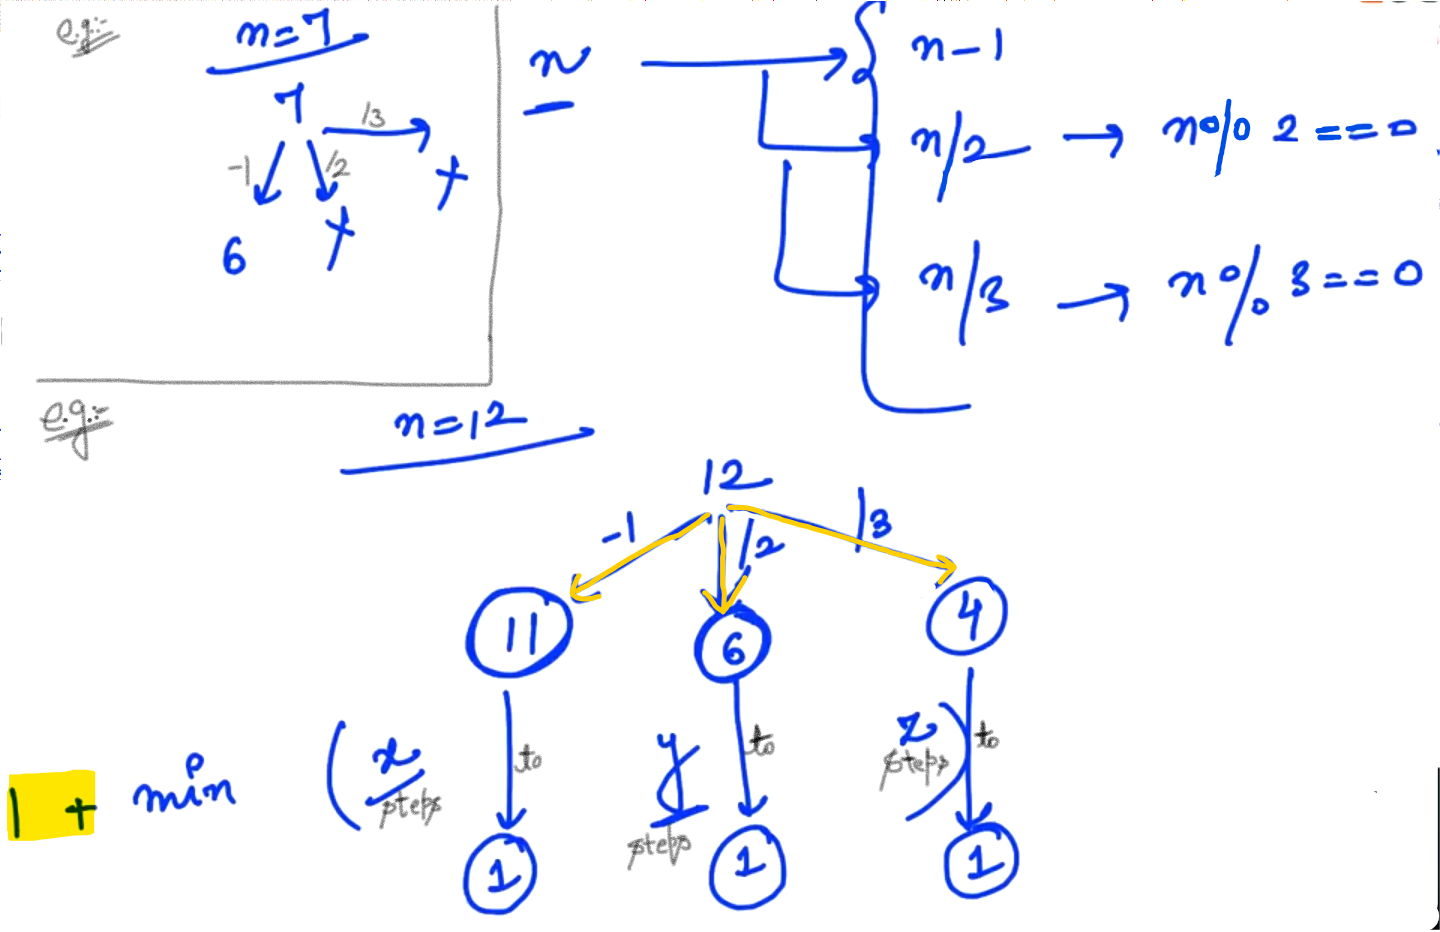 e.g:-
n=7
7
-1
/2
/3
6
x
x
n
n-1
n/2 → n%2==0
n/3 → n%3==0
e.g:-
n=12
12
-1
/2
/3
11
6
4
to
to
to
1 + min (x steps
y steps
z steps)
1
1
1